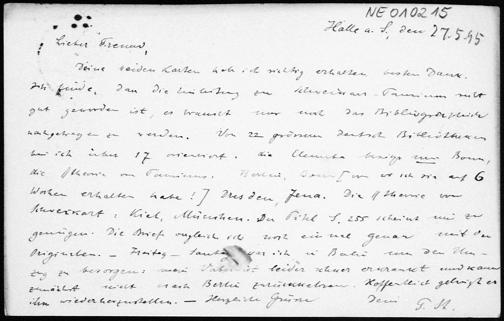 NE 010215
Halle a. S., den 27.5.95
Lieber Freund,
Deine beiden Karten hab ich richtig erhalten, besten Dank.
Ich finde, dass die Einleitung zu Schweikart-Taurinus recht
gut geworden ist, es braucht nur noch das Bibliographische
nachgetragen zu werden. Von 22 grösseren deutsch. Bibliotheken
bin ich über 17 orientiert. die Elementa besitzt nur Bonn,
die Theorie von Taurinus: Berlin, Bonn [von wo ich sie auf 6
Wochen erhalten habe!] Dresden, Jena. Die Theorie von
Schweikart: Kiel, München. Der Titel S. 255 scheint mir zu
genügen. Die Briefe vergleich ich noch einmal genau mit den
Originalen. — Freitag – war ich in Berlin um den Um-
zug zu besorgen: mein ist leider schwer erkrankt und kann
zunächst nicht nach Berlin zurückkehren. Hoffentlich gelingt es
ihn wiederherzustellen. — Herzliche Grüsse Dein P. St.